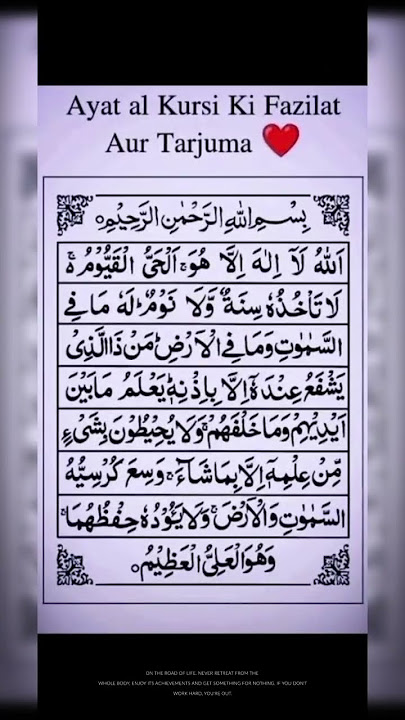 Ayat al Kursi Ki Fazilat
Aur Tarjuma ❤️
بِسْمِ اللهِ الرَّحْمٰنِ الرَّحِيْمِ۝
اَللهُ لَآ اِلٰهَ اِلَّا هُوَ ۚ اَلْحَيُّ الْقَيُّوْمُ ۬ۚ
لَا تَاْخُذُهٗ سِنَةٌ وَّلَا نَوْمٌ ؕ لَهٗ مَا فِي
السَّمٰوٰتِ وَمَا فِي الْاَرْضِ ؕ مَنْ ذَا الَّذِيْ
يَشْفَعُ عِنْدَهٗٓ اِلَّا بِاِذْنِهٖ ؕ يَعْلَمُ مَا بَيْنَ
اَيْدِيْهِمْ وَمَا خَلْفَهُمْ ۚ وَلَا يُحِيْطُوْنَ بِشَيْءٍ
مِّنْ عِلْمِهٖٓ اِلَّا بِمَا شَآءَ ۚ وَسِعَ كُرْسِيُّهُ
السَّمٰوٰتِ وَالْاَرْضَ ۚ وَلَا يَـُٔوْدُهٗ حِفْظُهُمَا ۚ
وَهُوَ الْعَلِيُّ الْعَظِيْمُ۝
ON THE ROAD OF LIFE, NEVER RETREAT FROM THE
WHOLE BODY. ENJOY ITS ACHIEVEMENTS AND GET SOMETHING FOR NOTHING. IF YOU DON'T
WORK HARD, YOU'RE OUT.